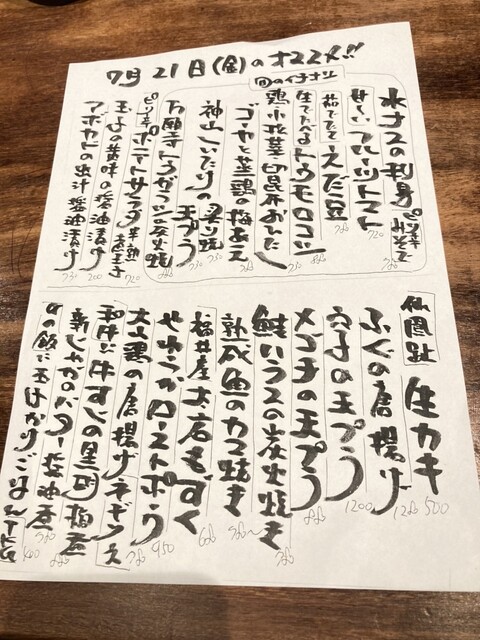 7月21日(金)のオススメ!!
旬のイチオシ
水ナスの刺身 ピリ辛みそで 780
甘ーい フルーツトマト 720
茹でたて えだ豆
生でたべる トウモロコシ 880
鶏・小松菜・切昆布おひたし 750
ゴーヤと蒸鶏の梅あえ 780
神山しいたけの炙り焼 750
万願寺トウガラシ炭火焼 880
ピリ辛ポテトサラダ 半熟煮玉子 720
玉子の黄味の醤油漬け 200
アボカドの出汁醤油漬け 750
仙鳳趾 生カキ 500
ふぐの唐揚げ 1280
穴子の天プラ 1200
メゴチの天プラ 880
鮭ハラスの炭火焼き 780
熟成魚のカマ焼き 780〜
福井産 太もずく 680
やわらかローストポーク 950
大山鶏の唐揚げ ネギソース 780
和牛すじの黒胡椒煮 880
新じゃがのバター醤油煮 780
〆の飯に玉子かけごはん TKG 400